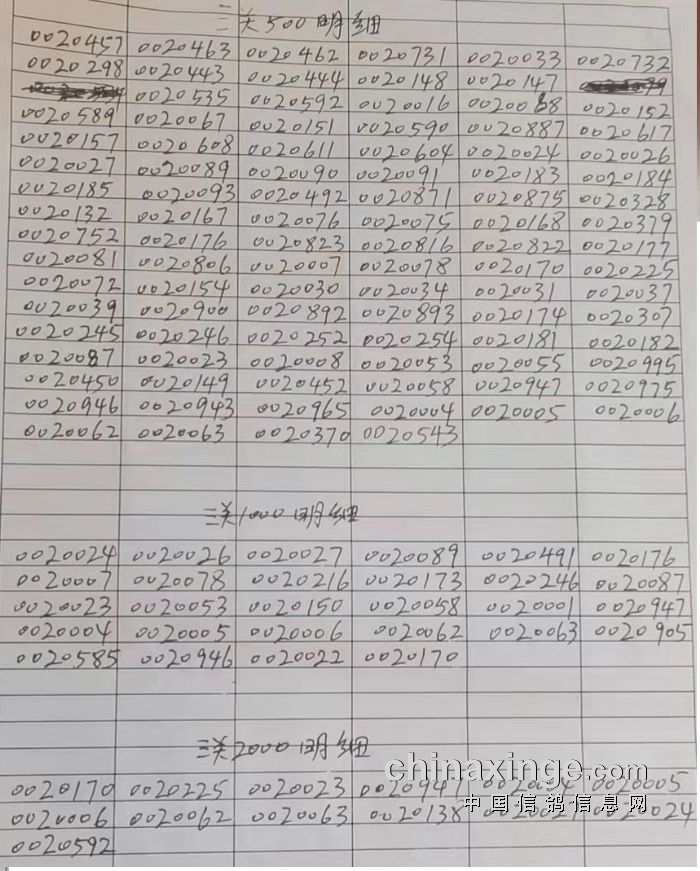 三关500明细
0020457 0020463 0020462 0020731 0020033 0020732
0020298 0020443 0020444 0020148 0020147
0020535 0020592 0020016 0020068 0020152
0020589 0020067 0020151 0020590 0020887 0020617
0020157 0020608 0020611 0020604 0020024 0020026
0020027 0020089 0020090 0020091 0020183 0020184
0020185 0020093 0020492 0020871 0020875 0020328
0020132 0020167 0020076 0020075 0020168 0020379
0020752 0020176 0020823 0020816 0020822 0020177
0020081 0020806 0020007 0020078 0020170 0020225
0020072 0020154 0020030 0020034 0020031 0020037
0020039 0020900 0020892 0020893 0020174 0020307
0020245 0020246 0020252 0020254 0020181 0020182
0020087 0020023 0020008 0020053 0020055 0020995
0020450 0020149 0020452 0020058 0020947 0020975
0020946 0020943 0020965 0020004 0020005 0020006
0020062 0020063 0020370 0020543
三关1000明细
0020024 0020026 0020027 0020089 0020491 0020176
0020007 0020078 0020216 0020173 0020246 0020087
0020023 0020053 0020150 0020058 0020001 0020947
0020004 0020005 0020006 0020062 0020063 0020905
0020585 0020946 0020022 0020170
三关2000明细
chinaxinge.com
0020170 0020225 0020023 0020947 0020005
中国信鸽信息网
0020006 0020062 0020063 0020138 0020024
0020592